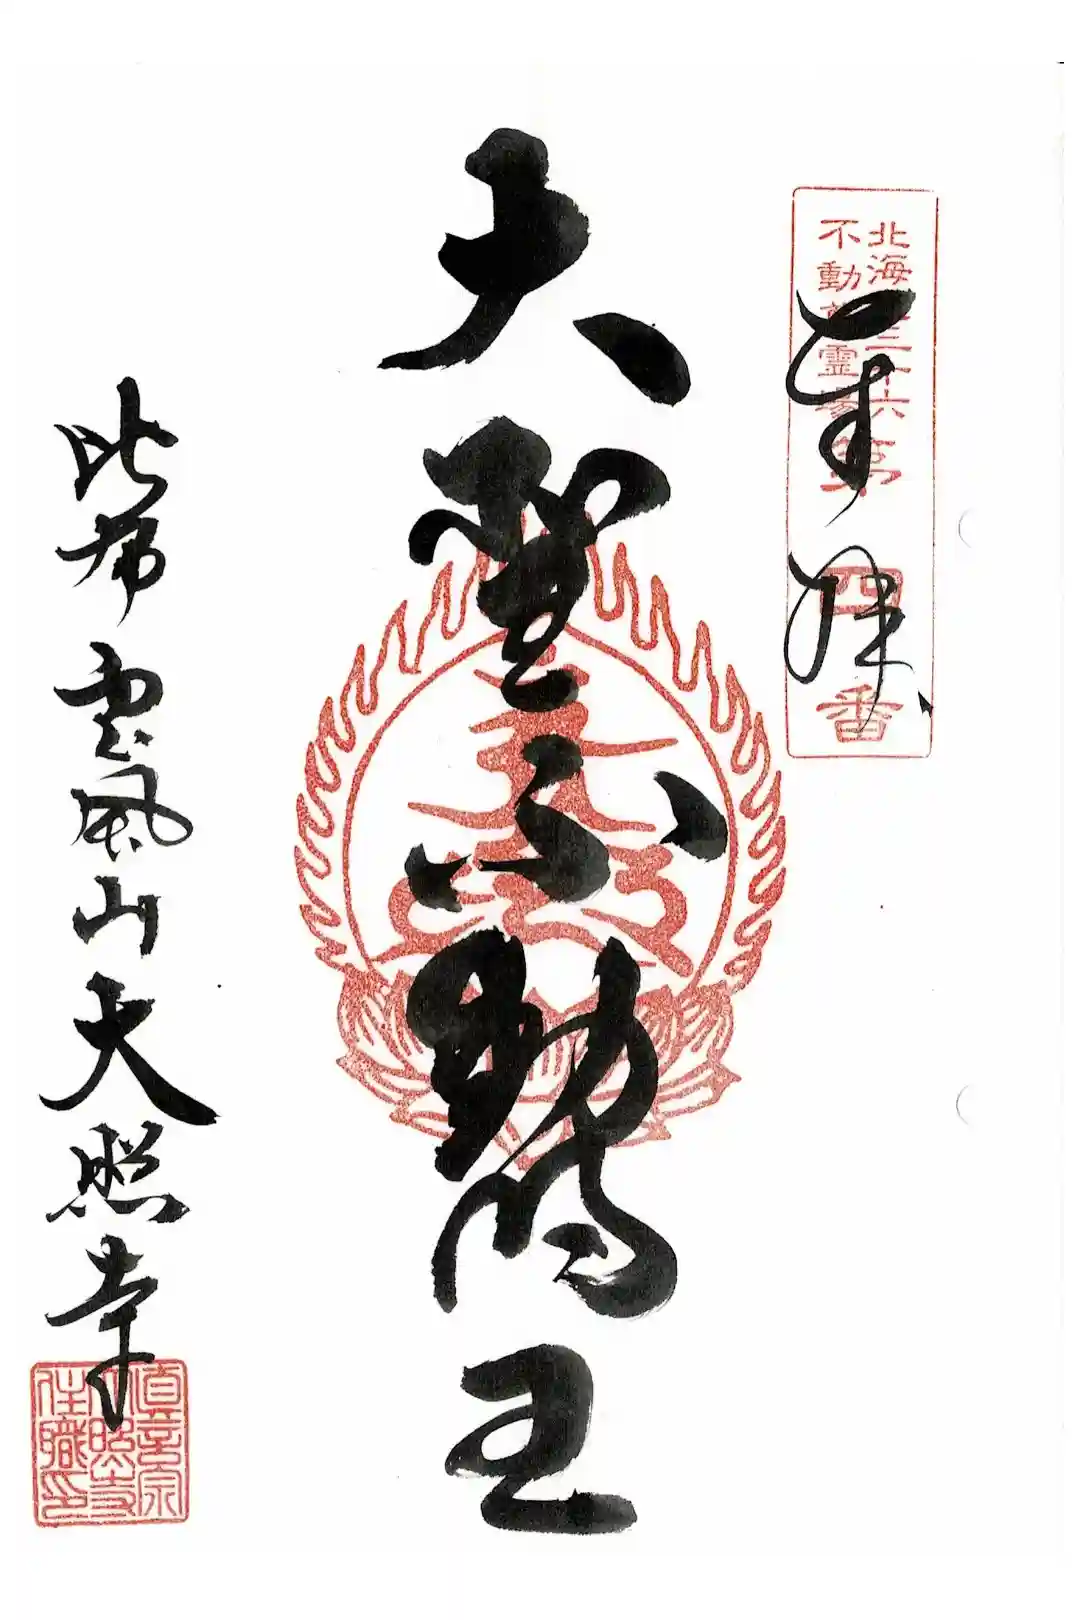 奉拝
北海道三十六
不動尊霊場
第四番
大聖不動明王
比布 雲風山 大照寺
真言宗
大照寺
住職印